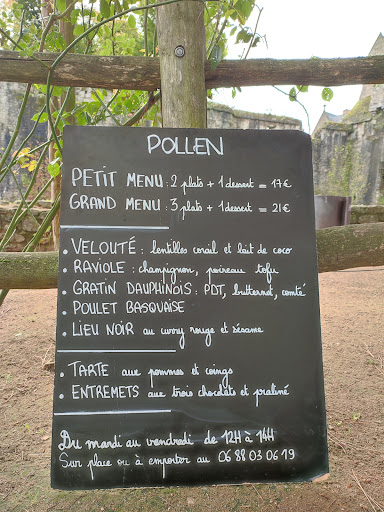 POLLEN
PETIT MENU : 2 plats + 1 dessert = 17€
GRAND MENU : 3 plats + 1 dessert = 21€
• VELOUTÉ : lentilles corail et lait de coco
• RAVIOLE : champignon, poireau tofu
• GRATIN DAUPHINOIS : PDT, butternot, comté
• POULET BASQUAISE
• LIEU NOIR au curry rouge et sésame
• TARTE aux pommes et coings
• ENTREMETS aux trois chocolats et praliné
Du mardi au vendredi de 12H à 14H
Sur place ou à emporter au 06 88 03 06 19